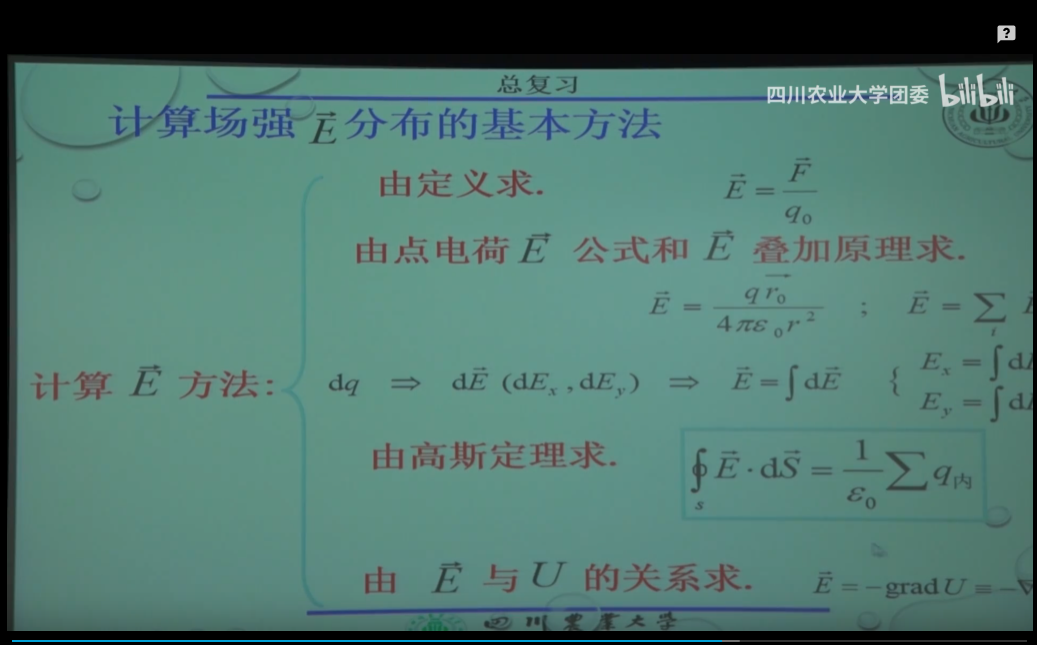 总复习
四川农业大学团委 bilibili
计算场强 E⃗ 分布的基本方法
由定义求. E⃗ = F⃗ / q₀
由点电荷 E⃗ 公式和 E⃗ 叠加原理求.
E⃗ = q r₀⃗ / 4πε₀r² ; E⃗ = ∑ᵢ
计算 E⃗ 方法:
dq ⇒ dE⃗ (dEₓ, dE_y) ⇒ E⃗ = ∫dE⃗ { Eₓ = ∫d
E_y = ∫d
由高斯定理求. ∮ₛ E⃗ · dS⃗ = 1/ε₀ ∑ q内
由 E⃗ 与 U 的关系求. E⃗ = −grad U ≡ −∇
四川农业大学